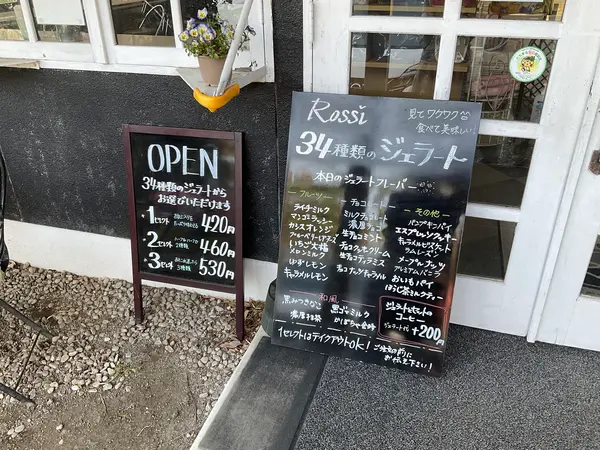 OPEN
34種類のジェラートから
お選びいただけます
1セレクト
420円
2セレクト
2種類
460円
3セレクト
3種類
530円
Rossi
見てワクワク
食べて美味しい!
34種類のジェラート
本日のジェラートフレーバー
フルーツ
ライチミルク
マンゴラッシー
カシスオレンジ
いちご大福
メロンミルク
ゆずレモン
キャラメルレモン
チョコレート
ミルクチョコレート
濃厚チョコ
生チョコミント
チョコクッキークリーム
生チョコティラミス
チョコナッツキャラメル
その他
パンプキンパイ
エスプレッソクッキー
キャラメルビスケット
ラムレーズン
メープルナッツ
プレミアムバニラ
おいもパイ
ほうじ茶ミルクティー
和風
黒みつきなこ
黒ゴマミルク
濃厚抹茶
かぼちゃ金時
ジェラートとセットの
コーヒー
ジェラート代 +200円
1セレクトはテイクアウトOK!
ご注文の前に
お伝え下さい!